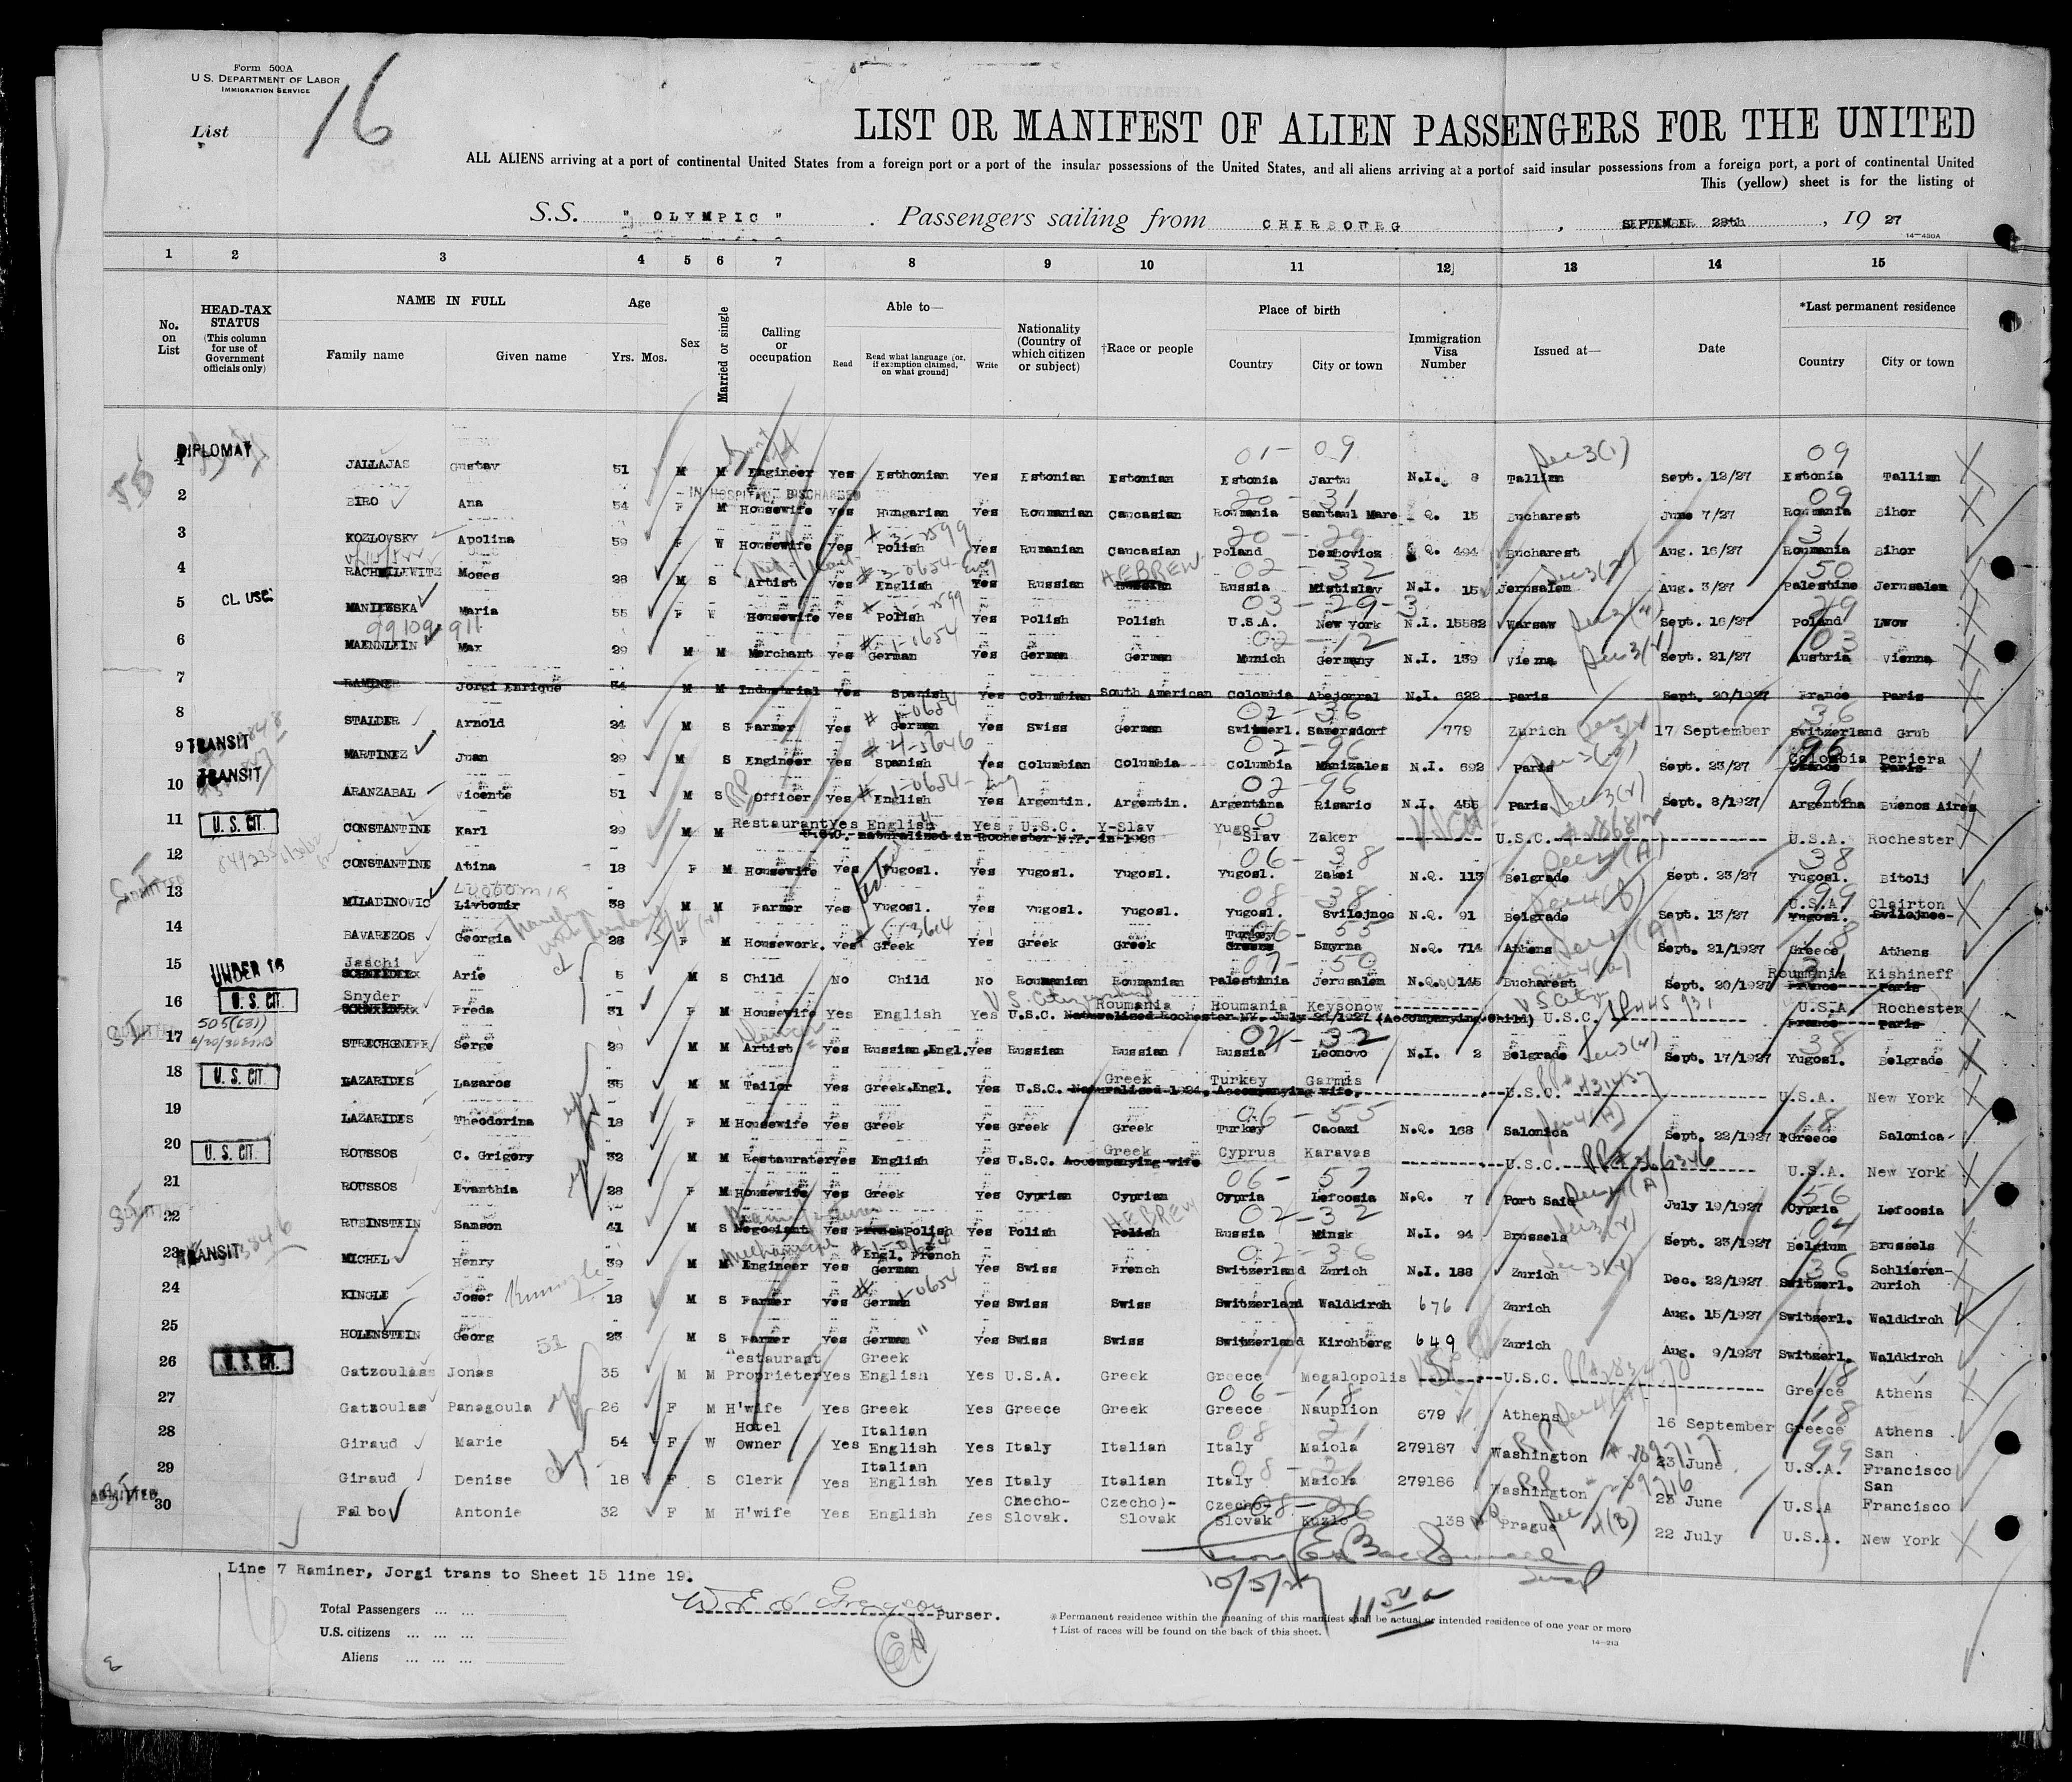 Form 500A
U.S. DEPARTMENT OF LABOR
IMMIGRATION SERVICE
List 16
LIST OR MANIFEST OF ALIEN PASSENGERS FOR THE UNITED
ALL ALIENS arriving at a port of continental United States from a foreign port or a port of the insular possessions of the United States, and all aliens arriving at a port of said insular possessions from a foreign port, a port of continental United
This (yellow) sheet is for the listing of
S.S. " OLYMPIC " . Passengers sailing from CHERBOURG , SEPTEMBER 28th , 19 27
14-430A
1 2 3 4 5 6 7 8 9 10 11 12 13 14 15
No. on List
HEAD-TAX STATUS (This column for use of Government officials only)
NAME IN FULL
Family name Given name
Age Yrs. Mos.
Sex
Married or single
Calling or occupation
Able to—
Read Read what language (or, if exemption claimed, on what ground) Write
Nationality (Country of which citizen or subject)
†Race or people
Place of birth
Country City or town
Immigration Visa Number
Issued at—
Date
*Last permanent residence
Country City or town
DIPLOMAT
1 JALLAJAS Gustav 51 M M Engineer yes Esthonian yes Estonian Estonian Estonia Jartu N.I. 8 Tallinn Sept. 12/27 Estonia Tallinn
IN HOSPITAL, DISCHARGED
2 BIRO Ana 54 F M Housewife yes Hungarian yes Roumanian Caucasian Roumania Santaul Mare Q. 15 Bucharest June 7/27 Roumania Bihor
3 KOZLOVSKY Apolina 59 F W Housewife yes Polish yes Rumanian Caucasian Poland Dembovioz Q. 494 Bucharest Aug. 16/27 Roumania Bihor
4 RACHMILEWITZ Moses 28 M S Artist yes English yes Russian HEBREW Russia Mistislav N.I. 15 Jerusalem Aug. 3/27 Palestine Jerusalem
5 CL USC. MANIEWSKA Maria 55 F W Housewife yes Polish yes Polish Polish U.S.A. New York N.I. 15582 Warsaw Sept. 16/27 Poland Lwow
99109-911
6 MAENNLEIN Max 29 M M Merchant yes German yes German German Munich Germany N.I. 139 Vienna Sept. 21/27 Austria Vienna
7 RAMINER Jorgi Enrique 34 M M Industrial yes Spanish yes Columbian South American Colombia Abejorral N.I. 622 Paris Sept. 20/1927 France Paris
8 STALDER Arnold 24 M S Farmer yes German yes Swiss German Switzerl. Samersdorf 779 Zurich 17 September Switzerland Grub
TRANSIT
9 MARTINEZ Juan 29 M S Engineer yes Spanish yes Columbian Columbia Columbia Manizales N.I. 692 Paris Sept. 23/27 Colombia Periera
France Paris
TRANSIT
10 ARANZABAL Vicente 51 M S Officer yes English yes Argentin. Argentin. Argentina Risario N.I. 455 Paris Sept. 8/1927 Argentina Buenos Aires
11 U.S. CIT. CONSTANTINE Karl 29 M M Restaurant Yes English Yes U.S.C. Y-Slav Yugo-Slav Zaker U.S.C. U.S.A. Rochester
U.S.C. naturalized in Rochester N.Y. in 1926
12 CONSTANTINE Atina 18 F M Housewife yes Yugosl. yes Yugosl. Yugosl. Yugosl. Zakei N.Q. 113 Belgrade Sept. 23/27 Yugosl. Bitolj
LUBOMIR
13 MILADINOVIC Livbomir 38 M M Farmer yes Yugosl. yes Yugosl. Yugosl. Yugosl. Svilojnoc N.Q. 91 Belgrade Sept. 13/27 U.S.A. Clairton
Yugosl. Svilojnoc
14 BAVAREZOS Georgia 28 F M Housework. yes Greek Yes Greek Greek Turkey Smyrna N.Q. 714 Athens Sept. 21/1927 Greece Athens
UNDER 16
15 Jaschi Arie 5 M S Child No Child No Roumanian Roumanian Palestinia Jerusalem N.Q. 145 Bucharest Sept. 20/1927 Roumania Kishineff
France Paris
16 U.S. CIT. Snyder Freda 31 F M Housewife Yes English Yes U.S.C. Roumania Roumania Keysonow U.S.C. U.S.A. Rochester
Naturalized Rochester NY. July 21/1927 (Accompanying Child)
France Paris
17 STRECHENEFF Serge 29 M M Artist yes Russian, Engl. yes Russian Russian Russia Leonovo N.I. 2 Belgrade Sept. 17/1927 Yugosl. Belgrade
18 U.S. CIT. LAZARIDES Lazaros 35 M M Tailor yes Greek. Engl. yes U.S.C. Greek Turkey Garmis U.S.C. U.S.A. New York
Naturalized 1924, Accompanying wife.
19 LAZARIDES Theodorina 18 F M Housewife yes Greek yes Greek Greek Turkey Caoazi N.Q. 168 Salonica Sept. 22/1927 Greece Salonica
20 U.S. CIT. ROUSSOS C. Grigory 32 M M Restaurater yes English yes U.S.C. Greek Cyprus Karavas U.S.C. U.S.A. New York
Accompanying wife
21 ROUSSOS Evanthia 28 F M Housewife yes Greek Yes Cyprian Cyprian Cypria Lefcosia N.Q. 7 Port Said July 19/1927 Cypria Lefcosia
22 RUBINSTEIN Samson 41 M S Negociant yes French Polish yes Polish HEBREW Russia Minsk N.I. 94 Brussels Sept. 23/1927 Belgium Brussels
TRANSIT
23 MICHEL Henry 39 M M Engineer yes Engl. French German yes Swiss French Switzerland Zurich N.I. 188 Zurich Dec. 22/1927 Switzerl. Schlieren-Zurich
24 KINGLE Josef 18 M S Farmer yes German yes Swiss Swiss Switzerland Waldkirch 676 Zurich Aug. 15/1927 Switzerl. Waldkirch
25 HOLENSTEIN Georg 23 M S Farmer yes German yes Swiss Swiss Switzerland Kirchberg 649 Zurich Aug. 9/1927 Switzerl. Waldkirch
26 U.S. CIT. Gatzoulass Jonas 35 M M Restaurant Proprieter Yes Greek English Yes U.S.A. Greek Greece Megalopolis U.S.C. Greece Athens
27 Gatzoulas Panagoula 26 F M H'wife Yes Greek Yes Greece Greek Greece Nauplion 679 Athens 16 September Greece Athens
28 Giraud Marie 54 F W Hotel Owner Yes Italian English Yes Italy Italian Italy Maiola 279187 Washington 23 June U.S.A. San Francisco
29 Giraud Denise 18 F S Clerk Yes Italian English Yes Italy Italian Italy Maiola 279186 Washington 23 June U.S.A San Francisco
ADMITTED
30 Falbo Antonie 32 F M H'wife Yes English Yes Checho-Slovak. Czecho)-Slovak Czecho-Slovak Kuzlo 138 Prague 22 July U.S.A. New York
Line 7 Raminer, Jorgi trans to Sheet 15 line 19.
10/5/27 11 50 a
Total Passengers ... ...
U.S. citizens ... ... ...
Aliens ... ... ...
Purser.
EH
* Permanent residence within the meaning of this manifest shall be actual or intended residence of one year or more
† List of races will be found on the back of this sheet.
14-213